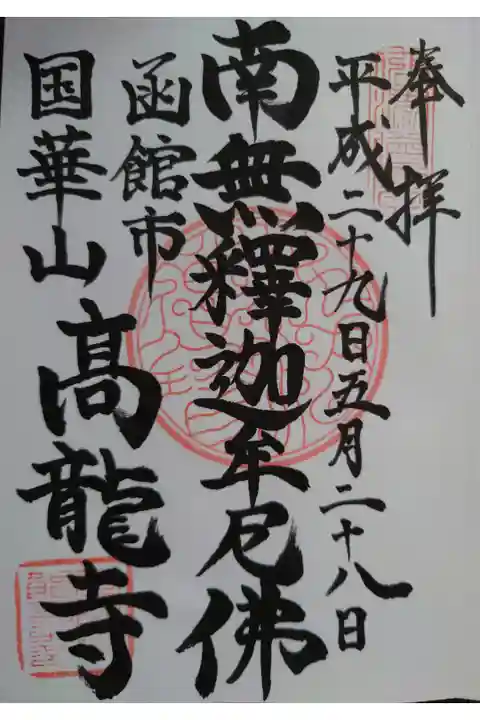 奉拝
平成二十九日五月二十八日
南無釋迦牟尼佛
函館市
国華山高龍寺